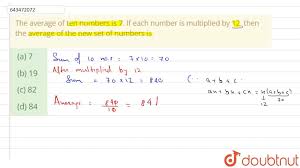 643472072
The average of ten numbers is 7. If each number is multiplied by 12, then
the average of the new set of numbers is
(a) 7
(b) 19
(c) 82
(d) 84
Sum of 10 no.s = 7×10 = 70
After multiplied by 12
Sum = 70×12 = 840
Average = 840/10 = 84
a+b+c
an+bn+cn = n(a+b+c)
12 70
doubtnut